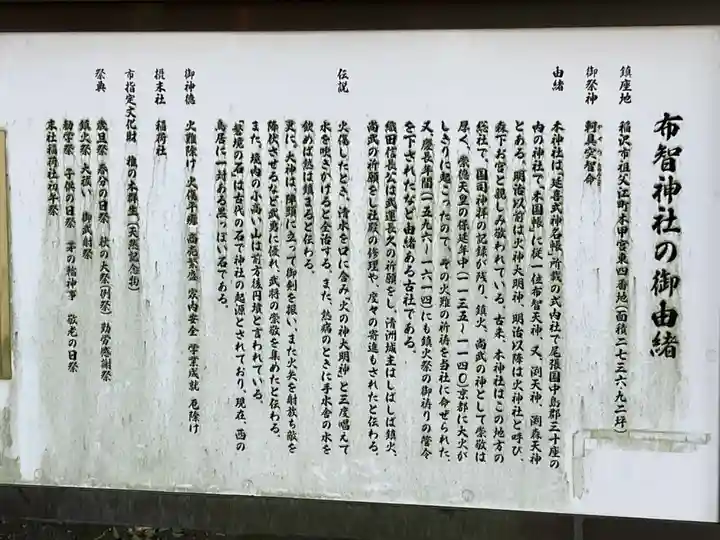 布智神社の御由緒
鎮座地 稲沢市祖父江町本甲宮東四番地(面積二七三六・九二坪)
御祭神 軻具突智命
由緒 本神社は「延喜式神名帳」所載の式内社で尾張国中島郡三十座の
内の神社で、本国帳に従一位布智天神、又、渕天神、渕森天神
とある。明治以前は火神大明神、明治以降は火神社と呼び、
森下お宮と親しみ敬われている。古来、本神社はこの地方の
総社で、国司神拝の記録が残り、鎮火、尚武の神として崇敬は
厚く、崇徳天皇の保延年中(一一三五〜一一四〇)京都に大火が
しきりに起こったので、その火難の祈祷を当社に命ぜられた、
又、慶長年間(一五九六〜一六一四)にも鎮火祭の御祈りの
を下されたなど由緒ある古社である。
織田信長公は武運長久の祈願をし、清洲城主はしばしば鎮火、
尚武の祈願をし社殿の修理や、度々の寄進もされたと伝わる。
伝説 火傷したとき、清水を口に含み「火の神大明神」と三度唱えて
水を吹きかけると全治する。また、熱病のときに手水舎の水を
飲めば熱は鎮まると伝わる。
更に、大神は、陣頭に立って御剣を振い、また火矢を射放ち敵を
降伏させるなど武勇に優れ、武将の崇敬を集めたと伝わる。
また、境内の小高い山は前方後円墳と言われている。
「磐境の石」は古代の石で神社の起源とされており、現在、西の
鳥居に一対ある黒っぽい石である。
御神徳 火難除け 火傷平癒 商売繁盛 家内安全 学業成就 厄除け
摂末社 稲荷社
市指定文化財 樵の木群生(天然記念物)
祭典 歳旦祭 春分の日祭 秋の大祭(例祭) 勤労感謝祭
鎮火祭 大祓い 御武射祭
勧学祭 子供の日祭 茅の輪神事 敬老の日祭
末社稲荷社初午祭